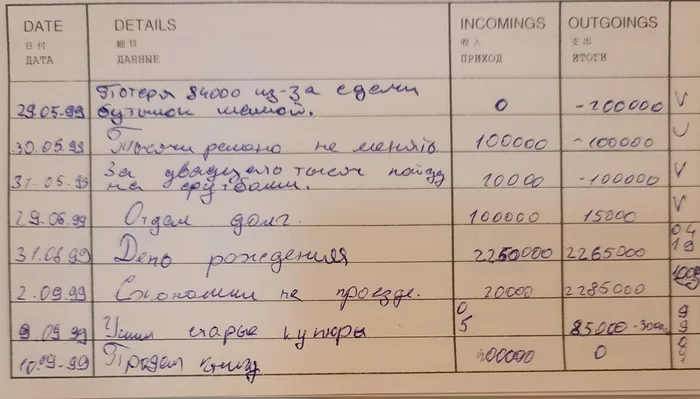 DATE DETAILS INCOMINGS OUTGOINGS
日付 細目 收入 支出
ДАТА ДАННЫЕ ПРИХОД ИТОГИ
Потеря 84000 из-за сдачи
29.05.99 бутылок мамой. 0 -200000 V
30.05.99 Тысячи не менять 100000 -100000
За двадцать тысяч пойду
31-05-99 на футболи. 10000 -100000 V
29.06.99 Отдам долг. 100000 15800 V
31.08.99 День рождения 2250000 2265000 04 19
2.09.99 Сэкономил на проезде. 20000 2285000
9.09.99 старые купюры 0 5 85000
10.09-99 Продал книгу 400000 0